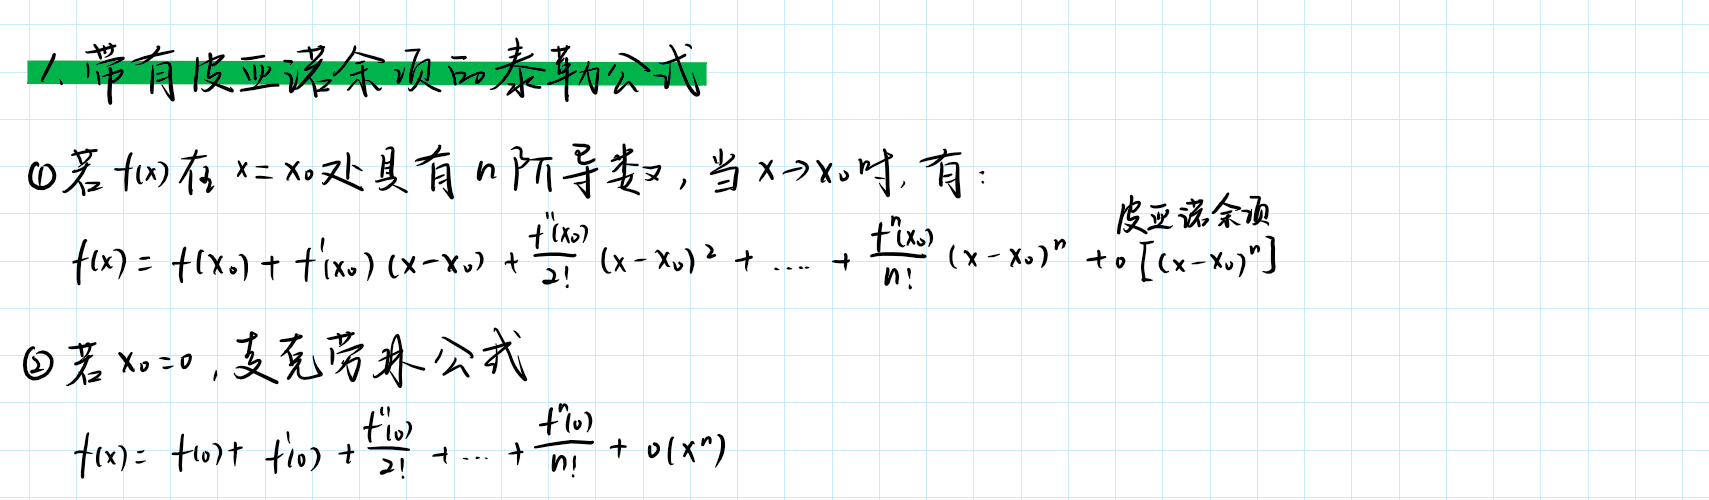 1. 带有皮亚诺余项的泰勒公式
① 若 f(x) 在 x = x₀ 处具有 n 阶导数, 当 x→x₀ 时, 有:
皮亚诺余项
f(x) = f(x₀) + f'(x₀)(x-x₀) + f''(x₀)/2! (x-x₀)² + .... + fⁿ(x₀)/n! (x-x₀)ⁿ + o[(x-x₀)ⁿ]
② 若 x₀=0, 麦克劳林公式
f(x) = f(0) + f'(0) + f''(0)/2! + ... + fⁿ(0)/n! + o(xⁿ)